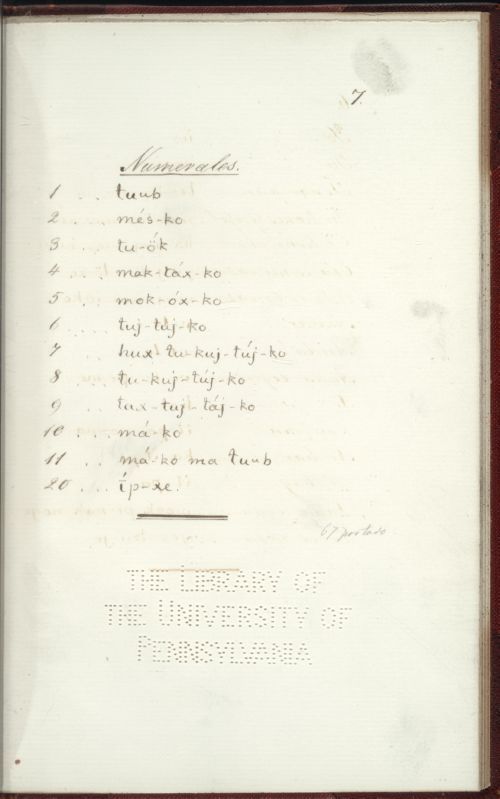 7.
Numerales.
1 . . tuub
2 . . . més-ko
3 . . . tu-ök
4 . . . mak-táx-ko
5 . . . mok-óx-ko
6 . . . tuj-túj-ko
7 . . hux tu-kuj-túj-ko
8 . . tu-kuj-túj-ko
9 . . tax-tuj-táj-ko
10 . . . má-kó
11 . . má-ko ma tuub
20 . . . íp-xe.
THE LIBRARY OF
THE UNIVERSITY OF
PENNSYLVANIA